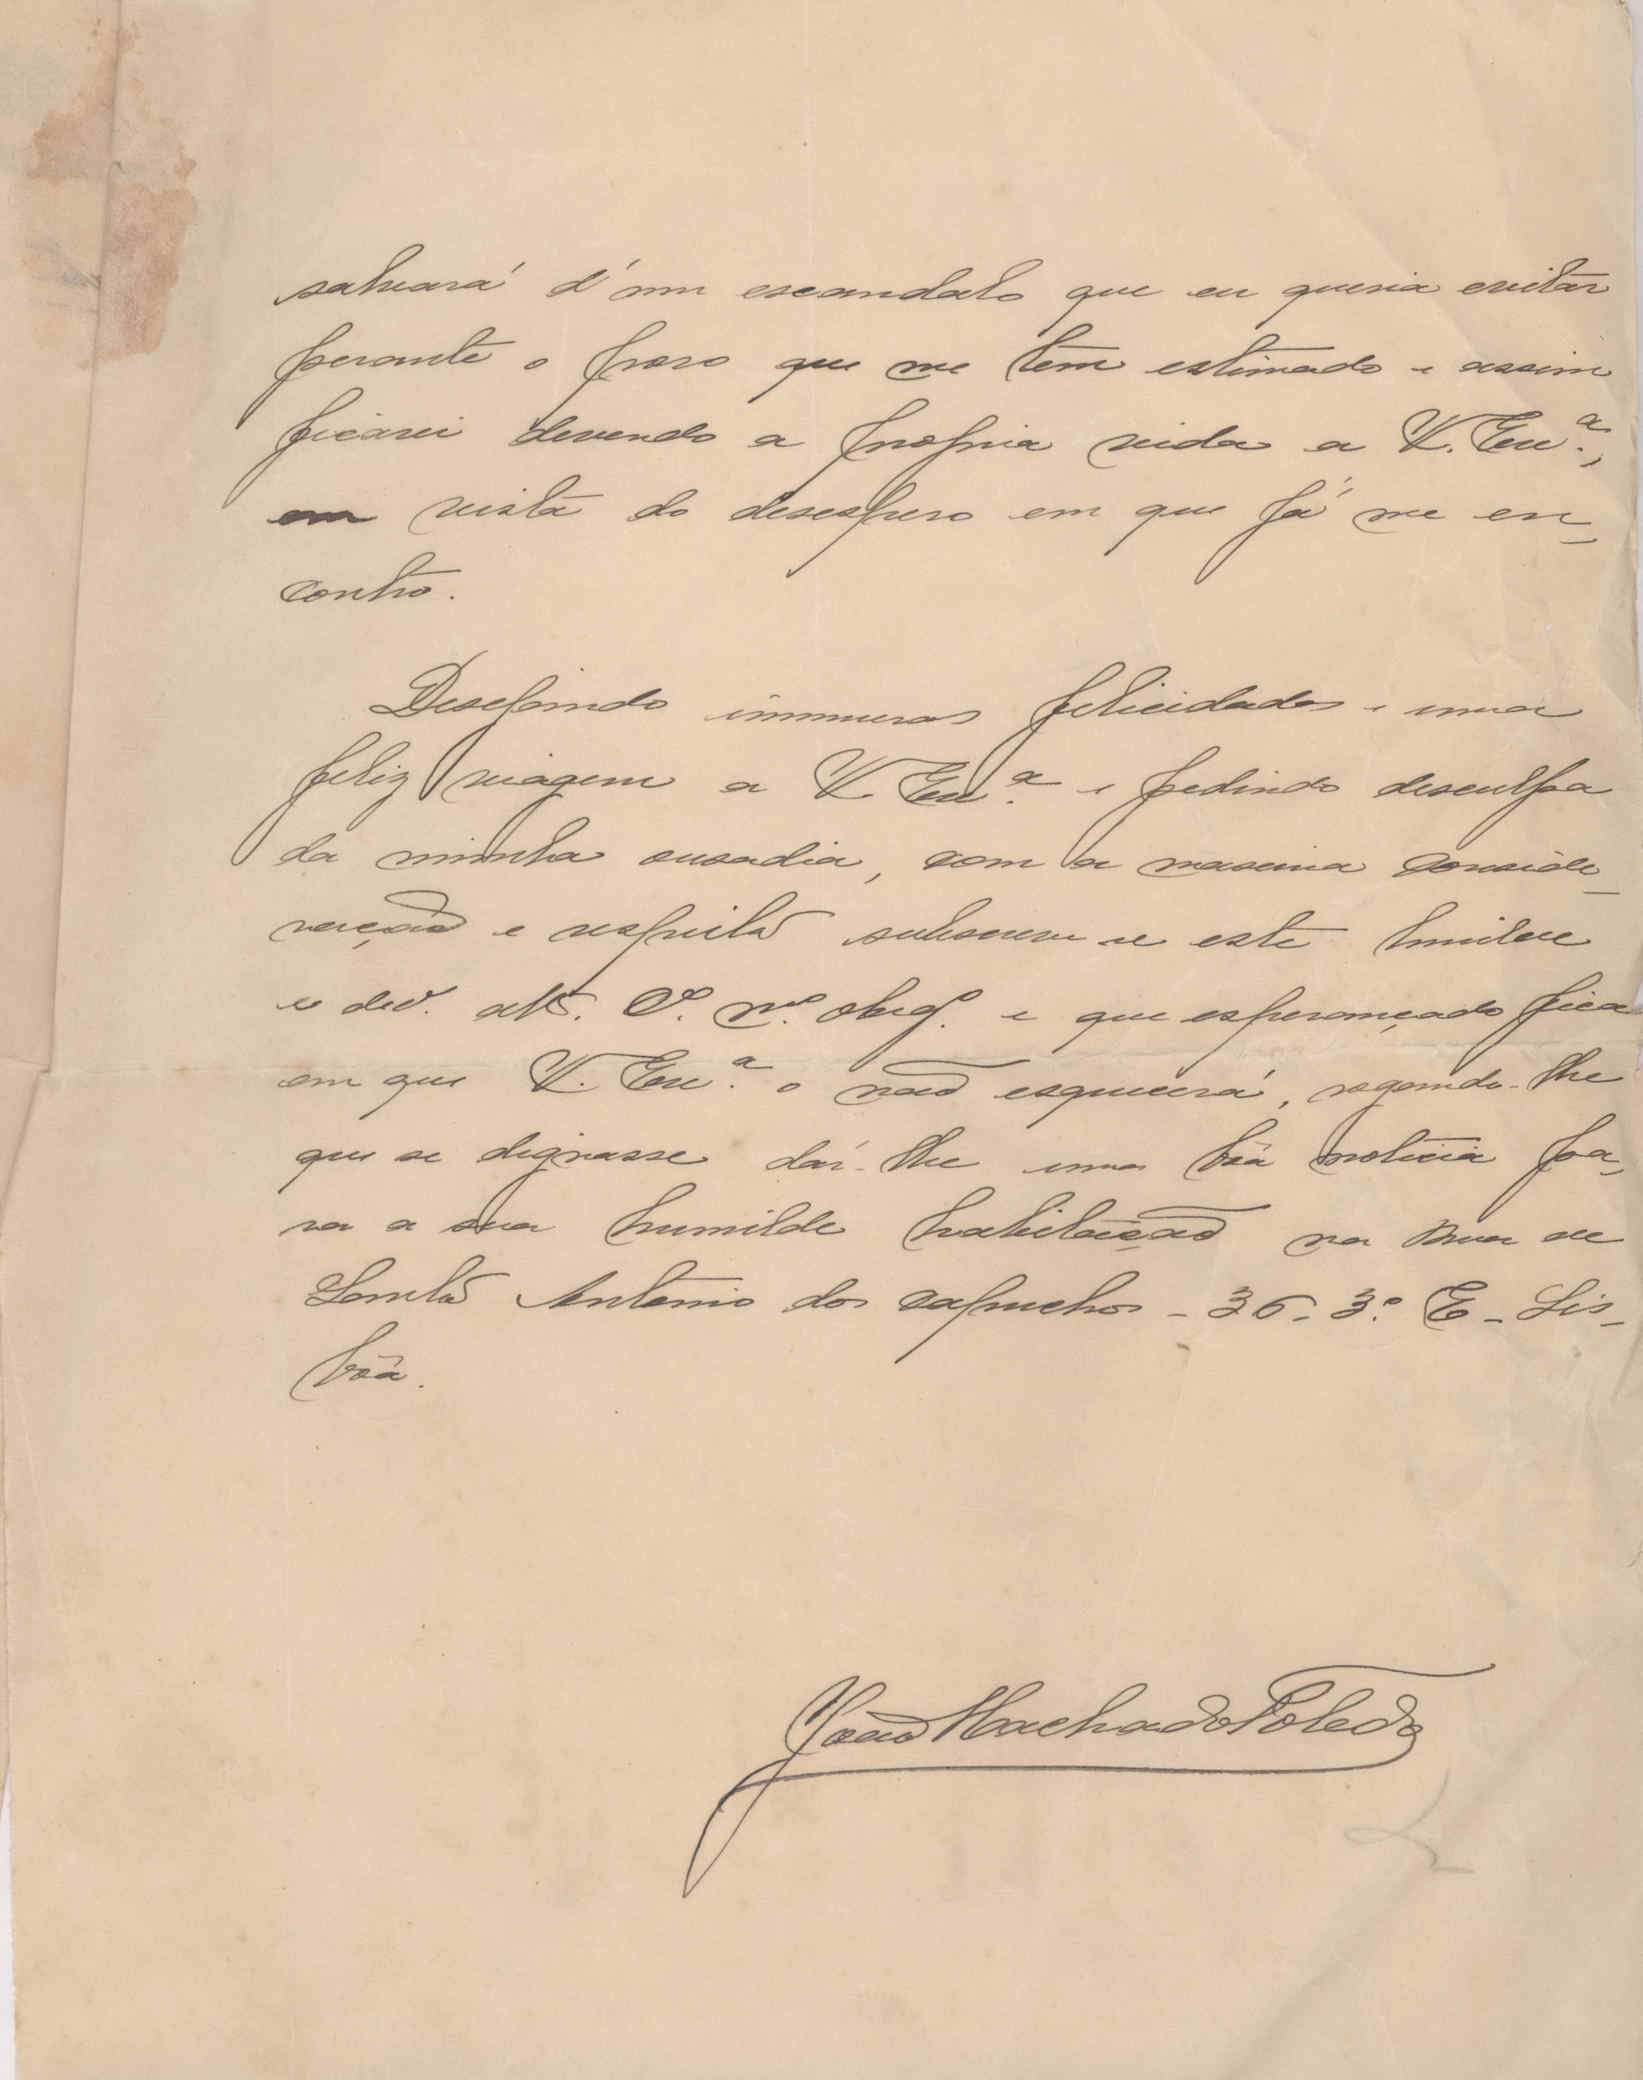 salvará d'um escandalo que eu queria evitar
perante o povo que me tem estimado e assim
ficarei devendo a propria vida a V. Exª.,
em vista do desespero em que já me en-
contro.
Desejando inumeras felicidades e uma
feliz viagem a V. Exª. e pedindo desculpa
da minha ousadia, com a maxima conside-
ração e respeito subscreve-se este humilde
e devº. attº. Cº. mº. obrigº. e que esperançado fica
em que V. Exª. o não esquecerá, rogando-lhe
que se dignasse dar-lhe uma bôa noticia pa-
ra a sua humilde habitação na Rua de
Santo Antonio dos Capuchos - 36 - 3º. E - Lis-
bôa.
João Machado Toledo